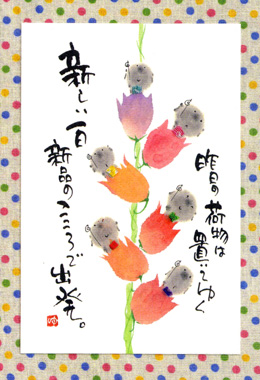 昨日の荷物は
置いてゆく
新しい一日
新品のこころで出発。